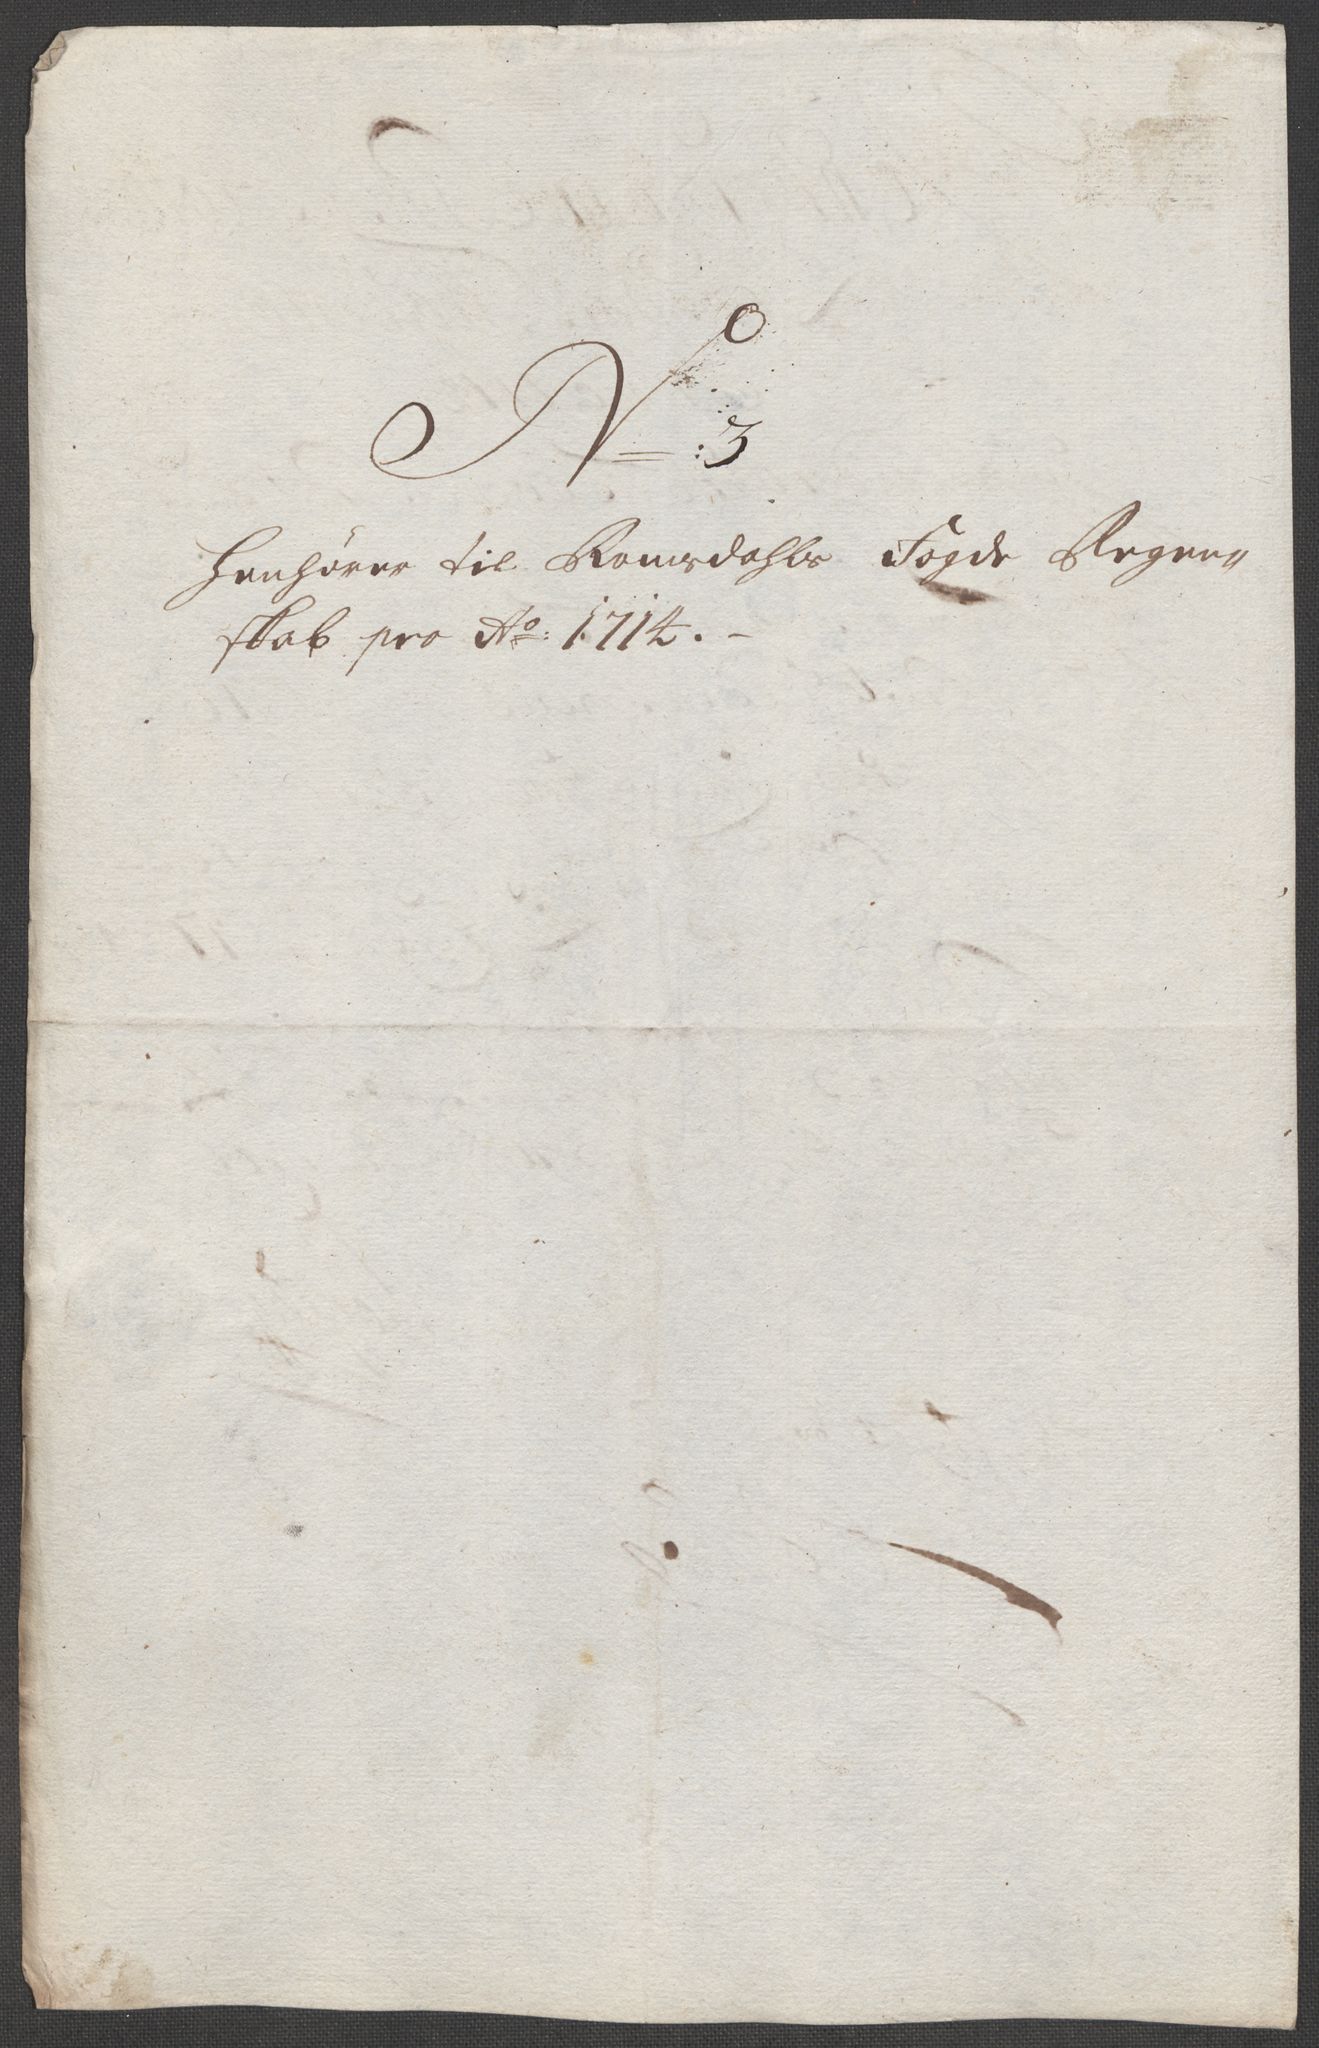 No: 3
Henhører til Romsdahls Fogde Regen„
skab pro Ao: 1714. –